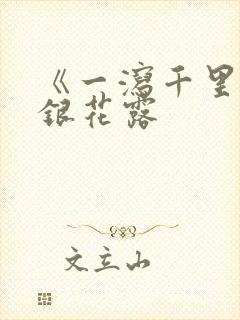 《一泻千里
银花露
文立山